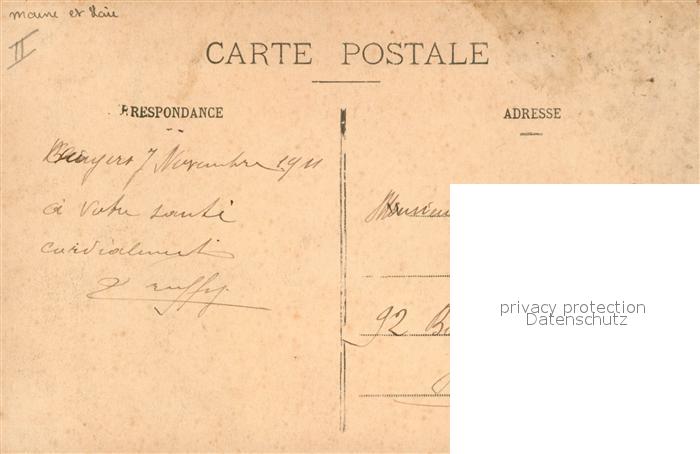 Maine et Loire
II
CARTE POSTALE
RRESPONDANCE
ADRESSE
7 Novembre 1911
à votre santé
cordialement
Monsieu
92 B
privacy protection
Datenschutz